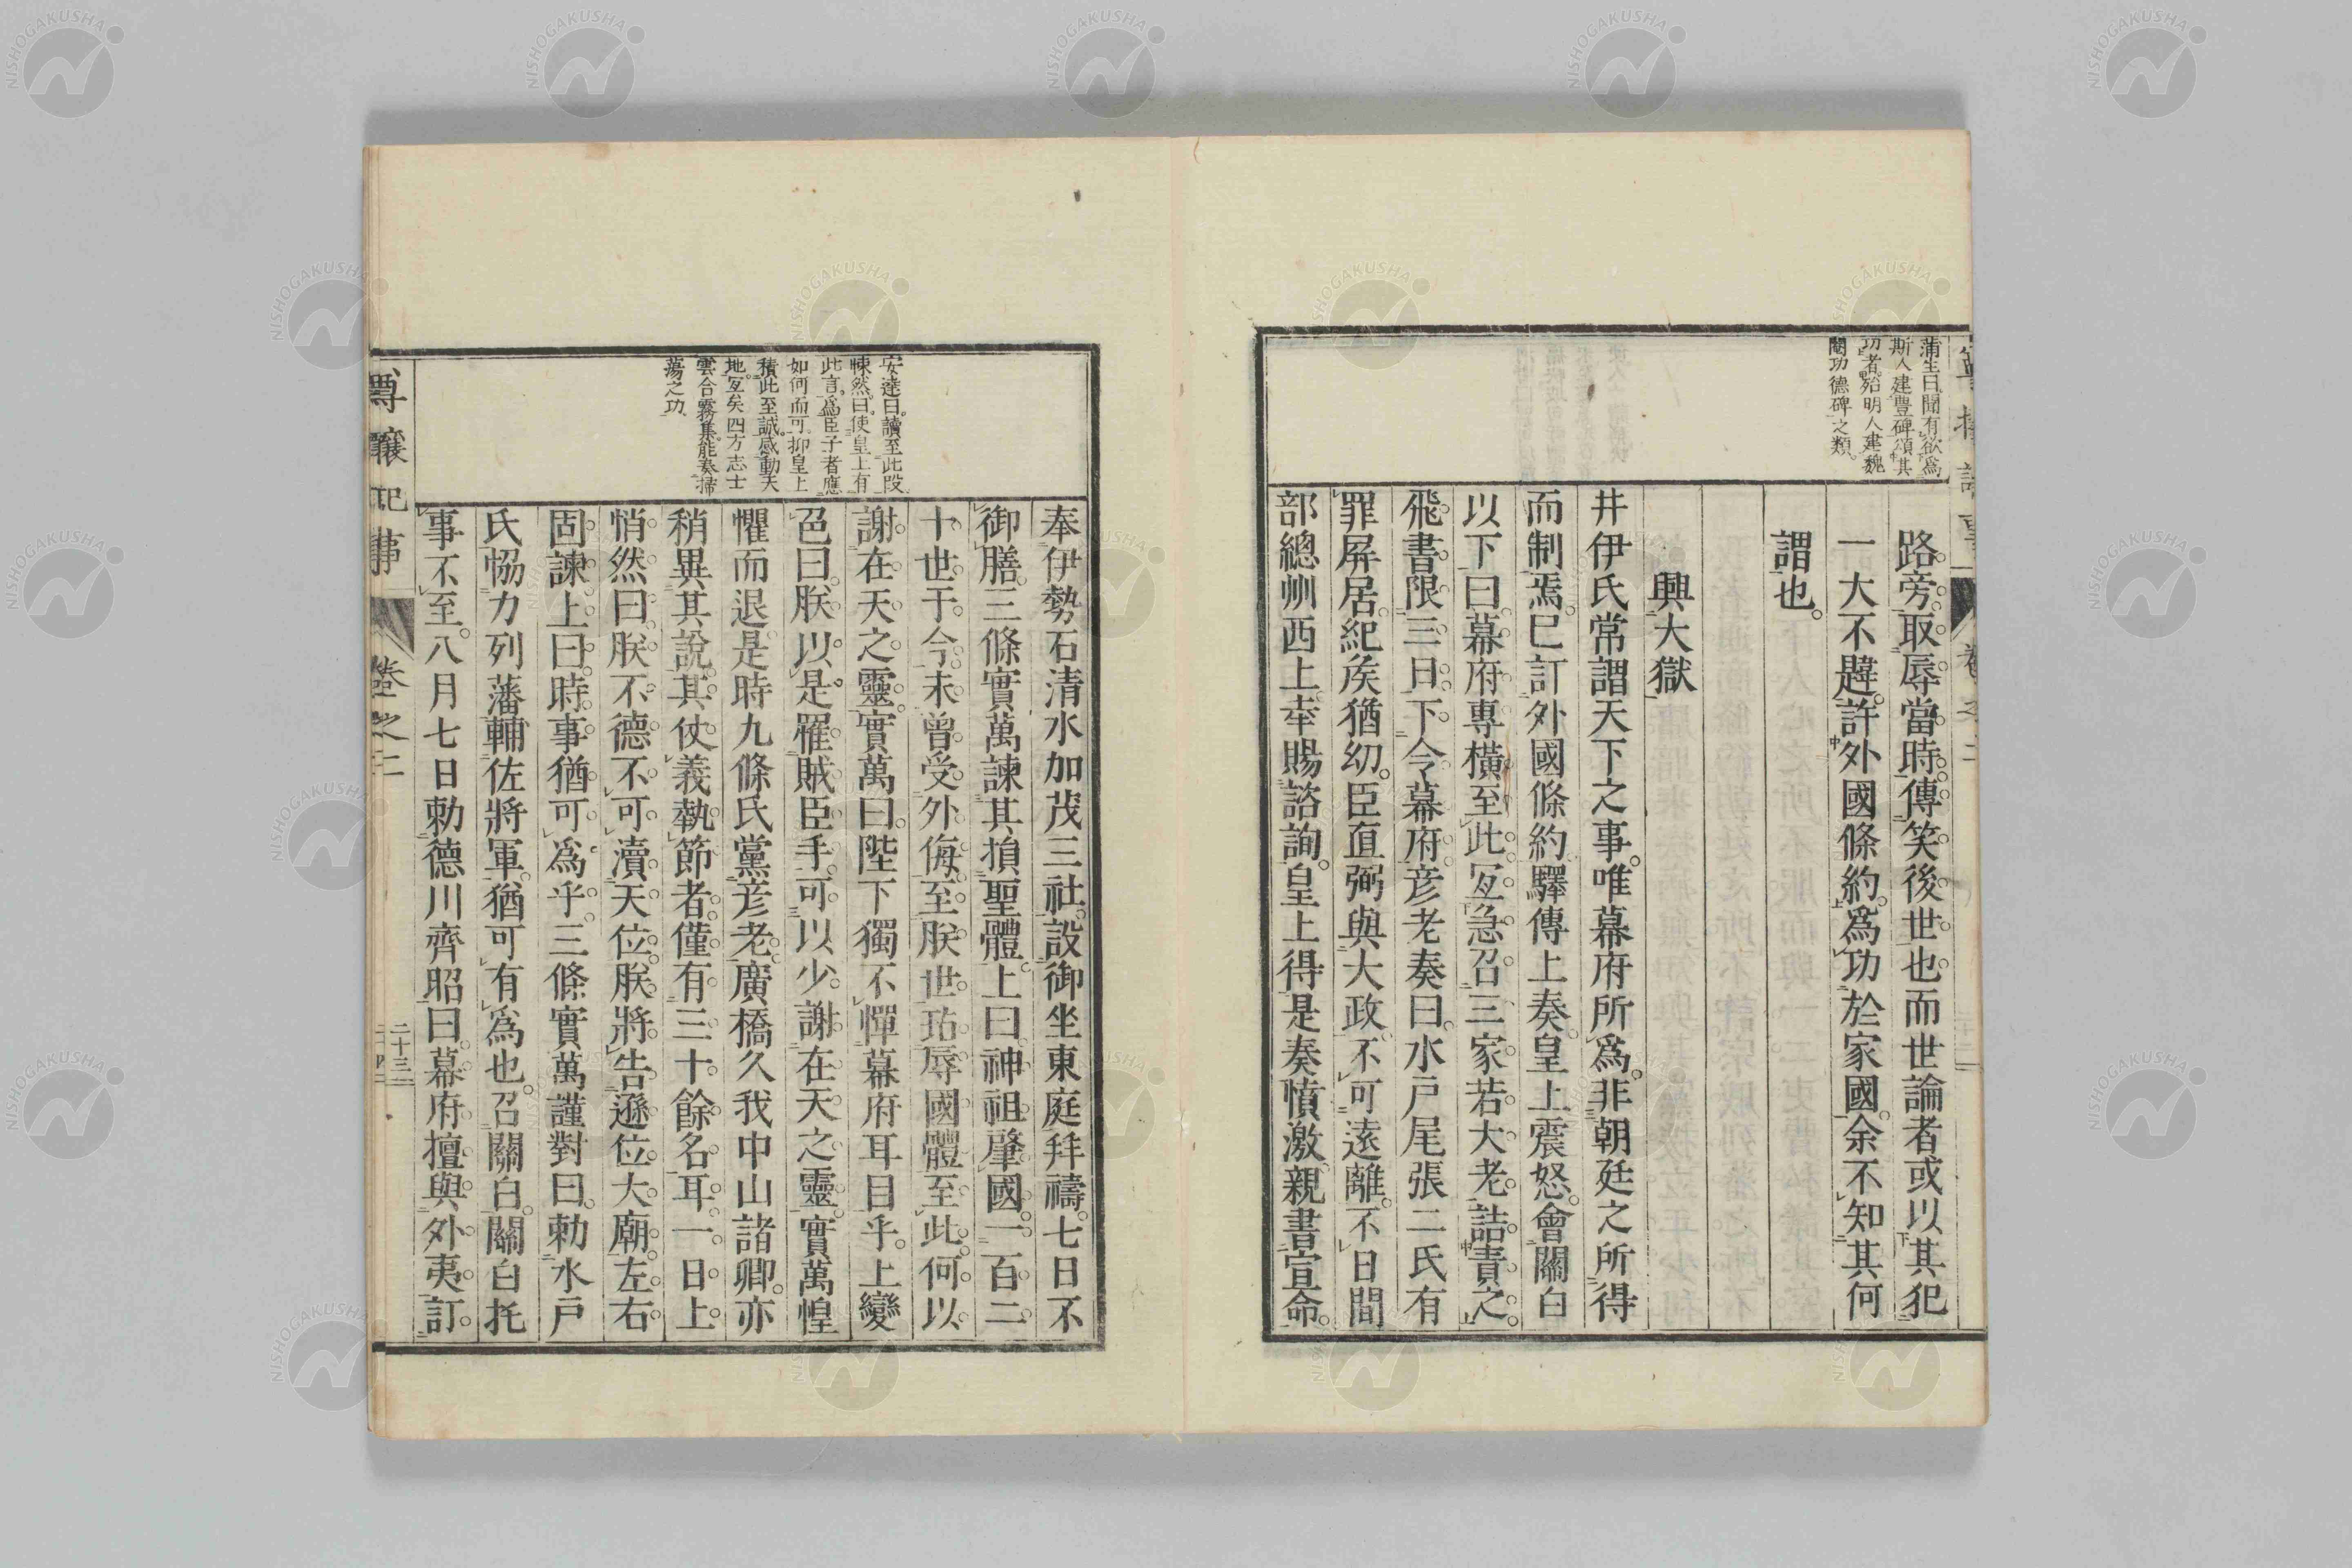 蒲生曰。聞有欲爲
斯人建豊碑頌其
功者。殆明人建魏
閹功德碑之類。
路旁。取辱當時。傳笑後世也。而世論者或以其犯
一大不韙。許外國條約。爲功於家國。余不知其何
謂也。
興大獄
井伊氏常謂天下之事。唯幕府所爲。非朝廷之所得
而制焉。已訂外國條約。驛傳上奏。皇上震怒。會關白
以下曰。幕府專橫至此。宜急召三家若大老。詰責之。
飛書。限三日。下令幕府。彦老奏曰。水戸尾張二氏有
罪屏居。紀侯猶幼。臣直弼與大政。不可遠離。不日間
部總州西上。幸賜諮詢。皇上得是奏憤激。親書宣命。
安達曰。讀至此段
悚然。曰。使皇上有
此言。爲臣子者應
如何而可。抑皇上
積此至誠。感動天
地。宜矣四方志士
雲合霧集。能奏掃
蕩之功。
奉伊勢石清水加茂三社。設御坐東庭拜禱。七日不
御膳。三條實萬諫其損聖體。上曰。神祖肇國。一百二
十世于今。未曾受外侮。至朕世玷辱國體至此。何以
謝在天之靈。實萬曰。陛下獨不憚幕府耳目乎。上變
色曰。朕以是罹賊臣手。可以少謝在天之靈。實萬惶
懼而退。是時九條氏黨彦老。廣橋久我中山諸卿。亦
稍異其說。其仗義執節者。僅有三十餘名耳。一日上
悄然曰。朕不德。不可瀆天位。朕將告遜位大廟。左右
固諫。上曰。時事猶可爲乎。三條實萬謹對曰。勅水戸
氏恊力列藩。輔佐將軍。猶可有爲也。召關白。關白托
事不至。八月七日勅德川齊昭曰。幕府擅與外夷訂
尊攘記事
卷之二
二十三